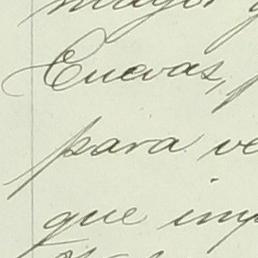 mayor
Cuevas,
para ve
que imp